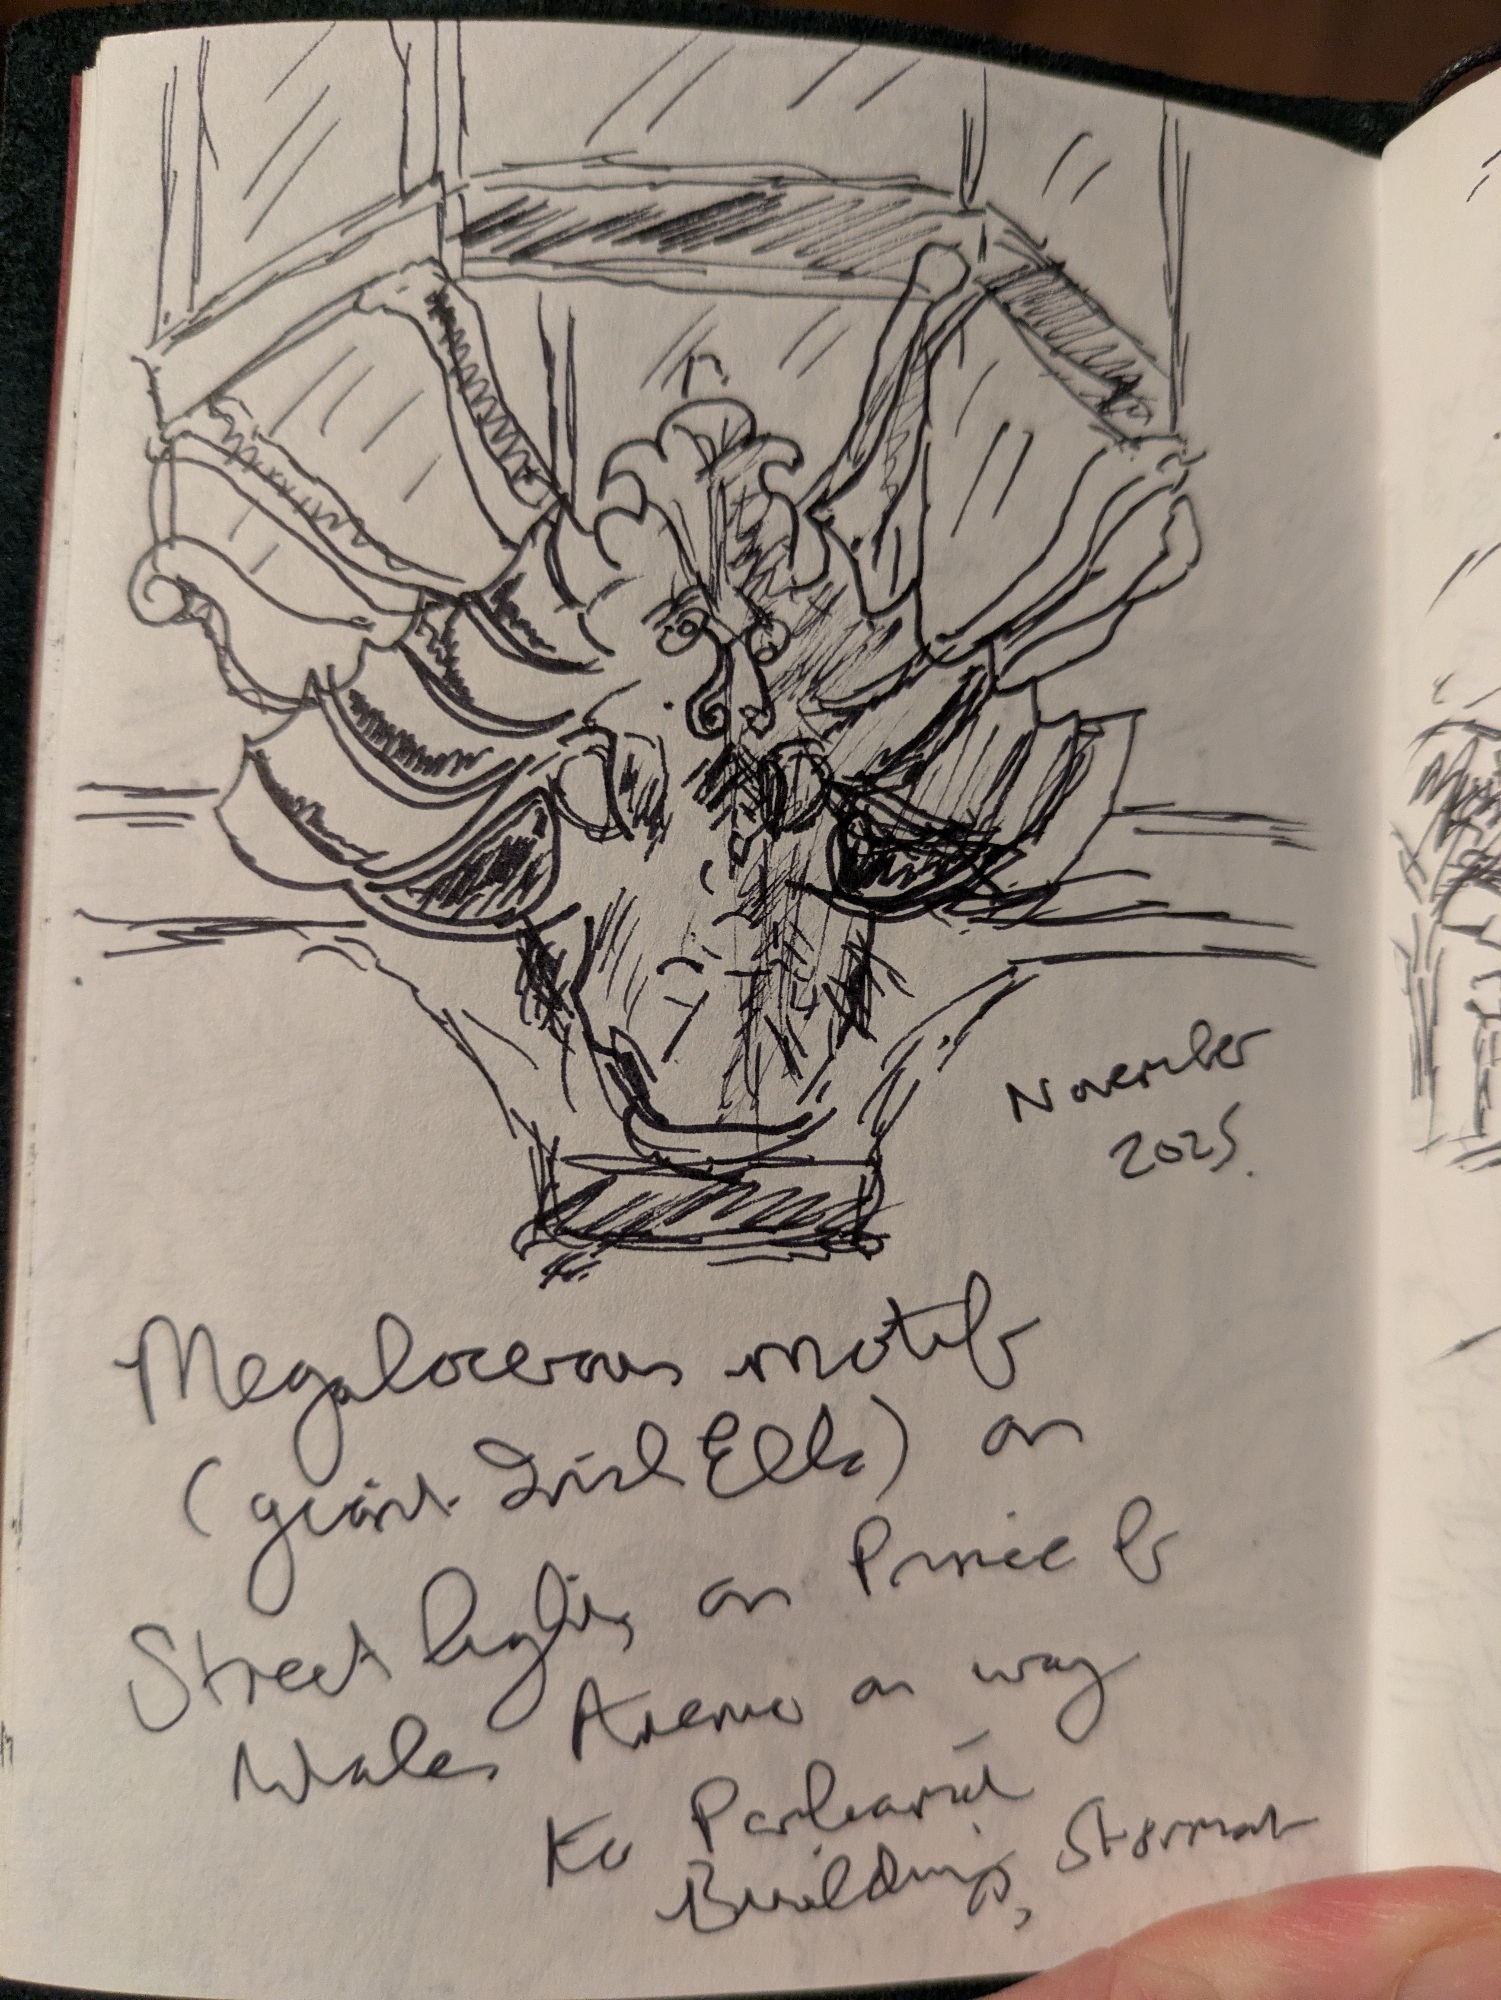 November
2025.
Megalocerous motifs
(giant Irish Elk) on
Street lights on Prince of
Wales Avenue on way
to Parliament
Buildings, Stormont